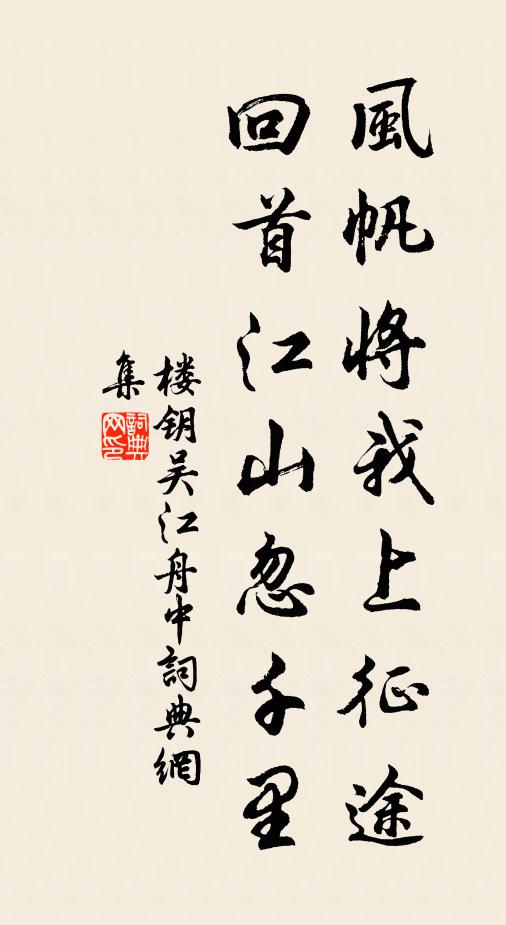 風帆將我上征途
回首江山忽千里
楼钥吴江舟中詞典網
集
詞典
网印